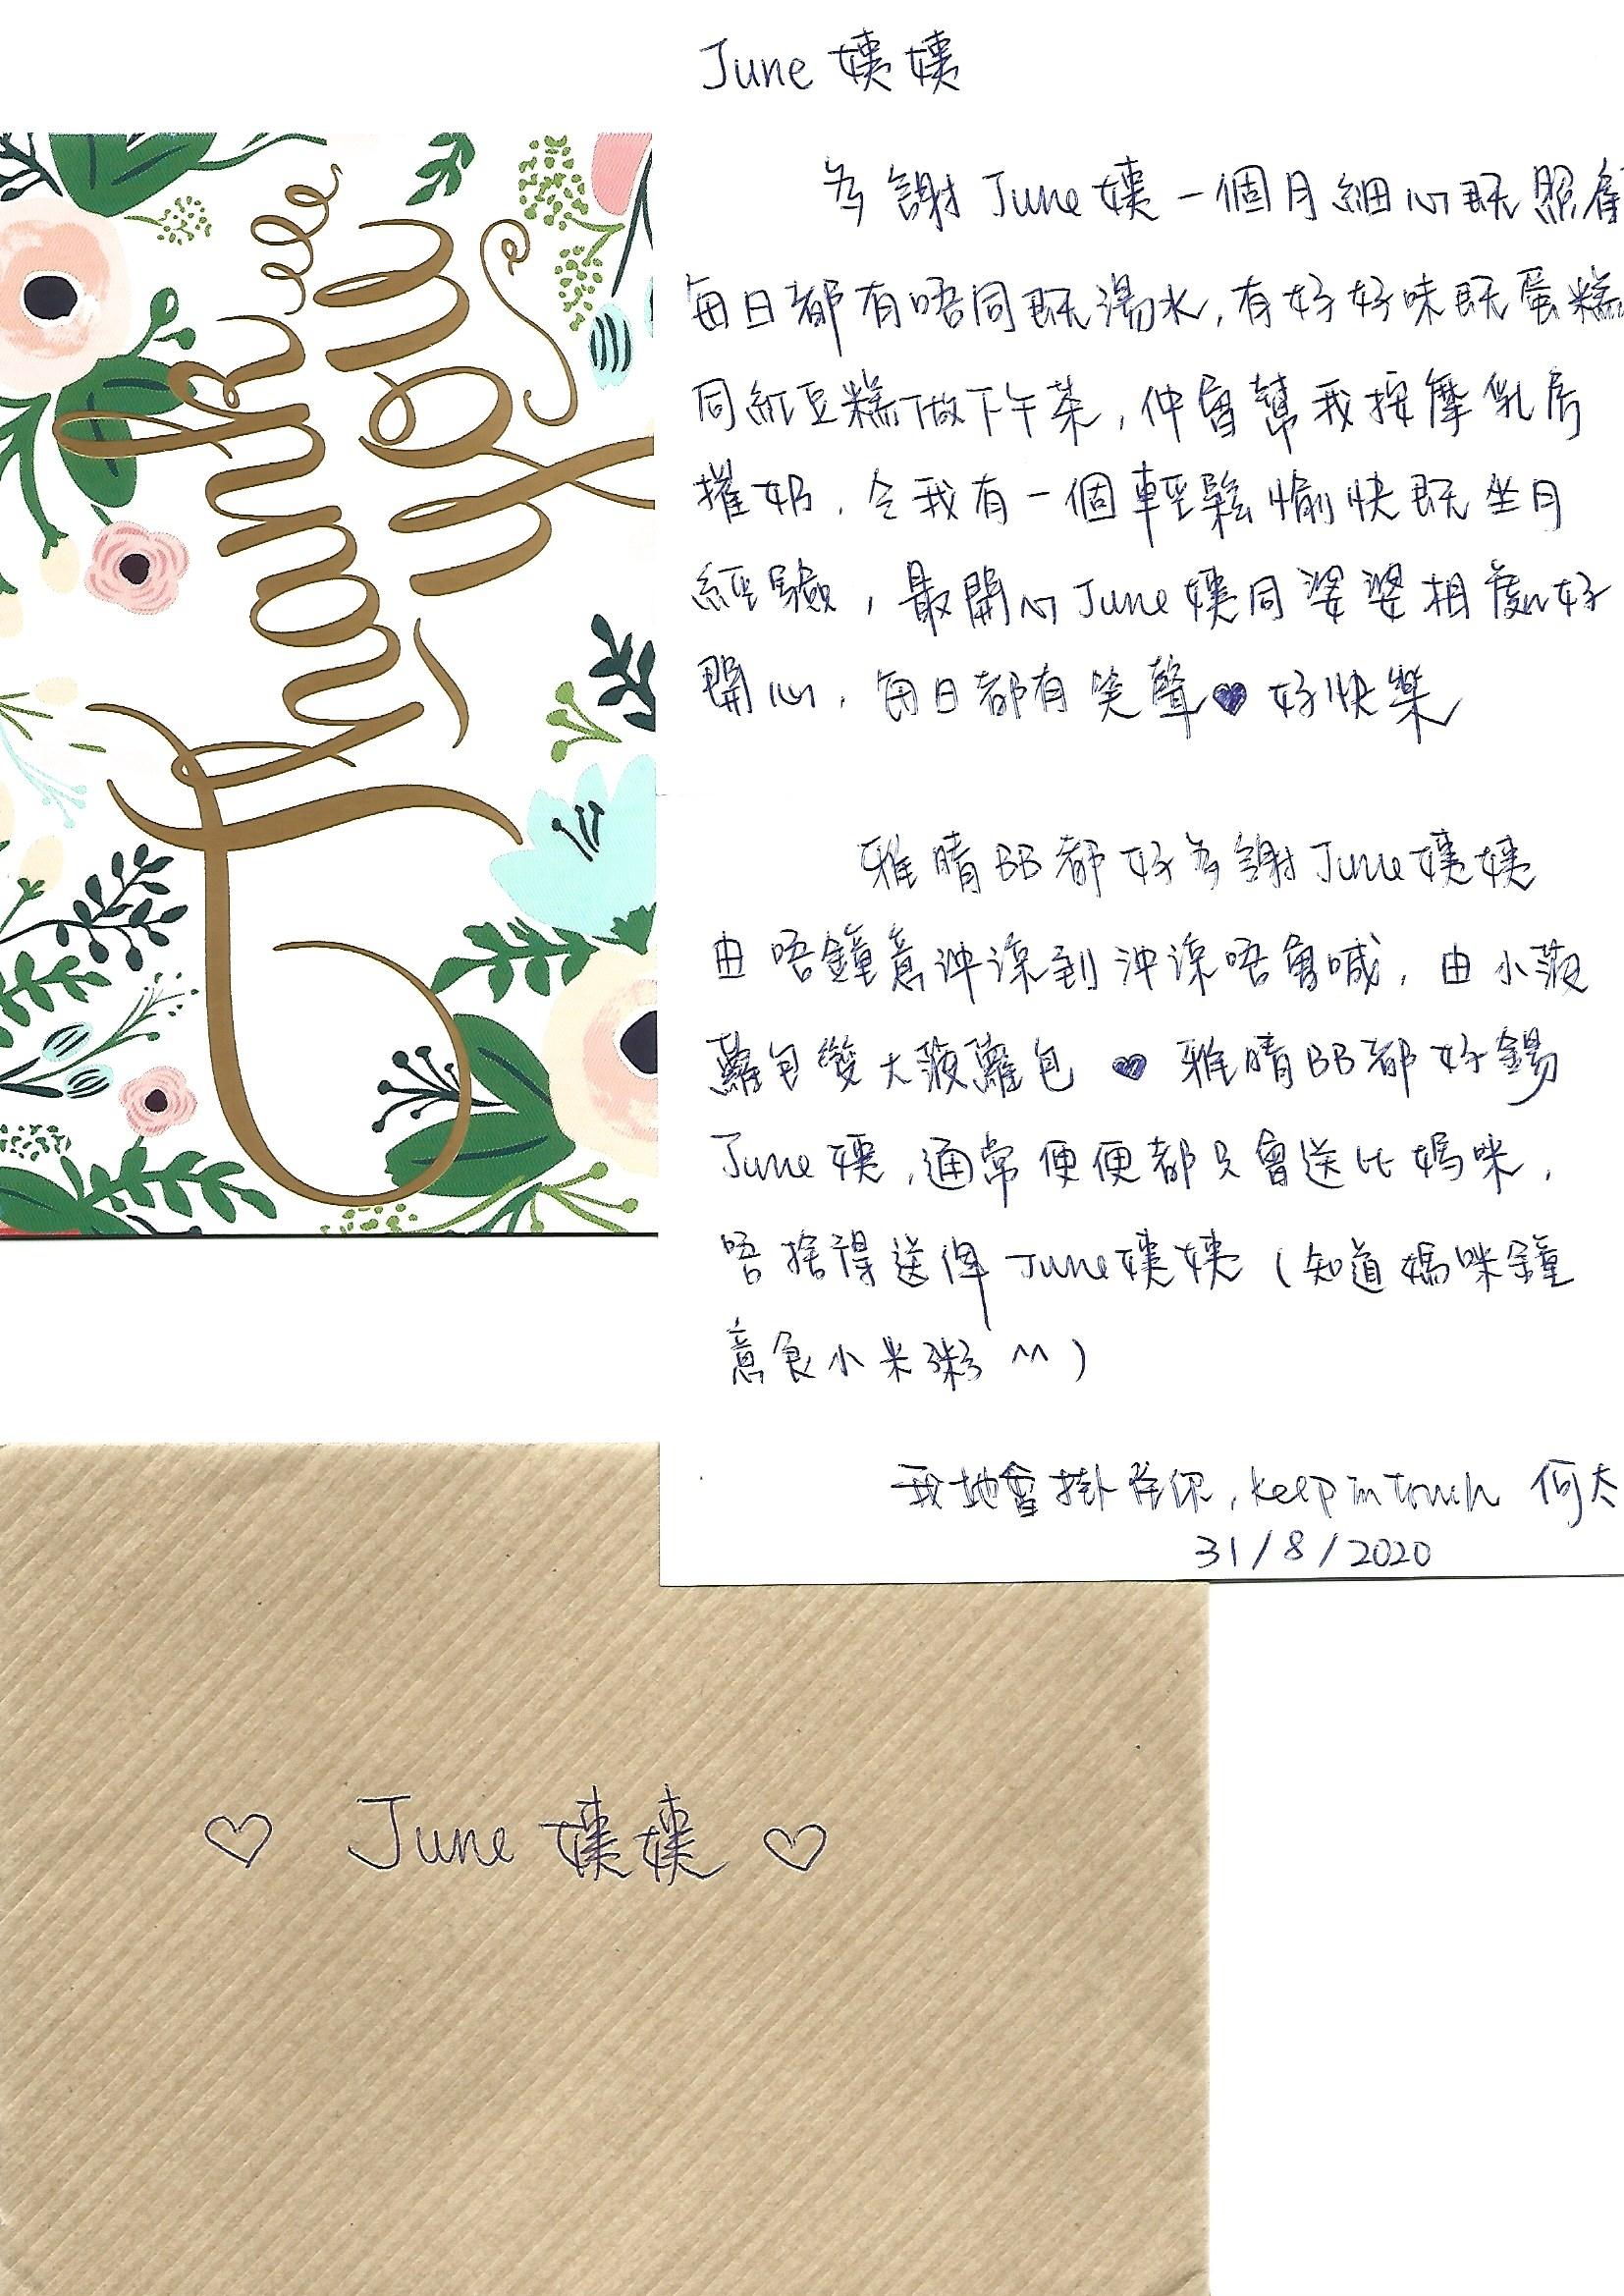 June 姨姨
多謝 June 姨一個月細心既照顧
每日都有唔同既湯水,有好好味既蛋糕
同紅豆糕做下午茶,仲會幫我按摩乳房
摧奶,令我有一個輕鬆愉快既坐月
經驗,最開心June 姨同婆婆相處好
開心,每日都有笑聲♥好快樂
雅晴BB都好多謝June姨姨
由唔鐘意沖涼到沖涼唔會喊,由小菠
蘿包變大菠蘿包 ♥ 雅晴BB都好錫
June姨,通常便便都只會送比媽咪,
唔捨得送俾June姨姨 (知道媽咪鐘
意食小米粥 ^^)
我地會掛住你, keep in touch 何太
31/8/2020
Thank you
♡ June 姨姨 ♡